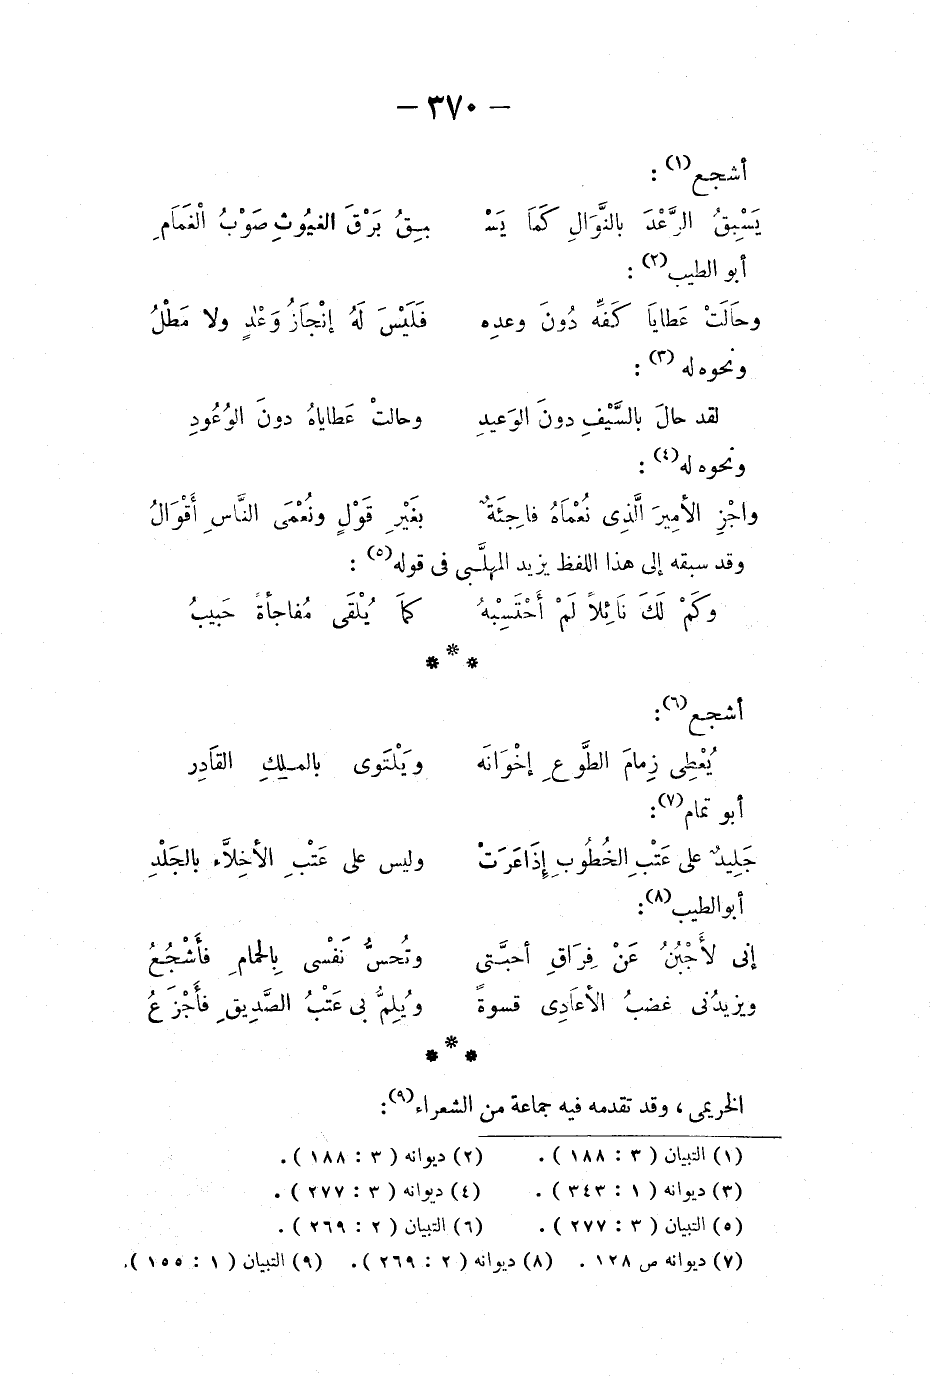 — ٣٧٠ —
أشجع(١) :
يَسْبِقُ الرَّعْدَ بالنَّوَالِ كَمَا يَسْـ ـبِقُ بَرْقَ الغيُوثِ صَوْبُ الْغَمَامِ
أبو الطيب(٢) :
وحاَلَتْ عَطاياَ كَفِّه دُونَ وعدِه فَلَيْسَ لَهُ إنْجَازُ وَعْدٍ ولا مَطْلُ
ونحوه له (٣) :
لقد حالَ بالسَّيْفِ دونَ الوَعيدِ وحالتْ عَطاياهُ دونَ الوُعُودِ
ونحوه له(٤) :
واجْزِ الأميرَ الَّذِى نُعْماَهُ فاجِئَةٌ بغَيْرِ قَوْلٍ ونُعْمَى النَّاسِ أَقْوَالُ
وقد سبقه إلى هذا اللفظ يزيد المهلَّبى فى قوله(٥) :
وكَمْ لَكَ نَائِلاً لَمْ أَحْتَسِبْهُ كماَ يُلْقَى مُفاجأةً حَبيبُ
* * *
أشجع(٦):
يُعْطِى زِمامَ الطَّوْعِ إخْوَانَه ويَلْتَوى بالملِكِ القَادِر
أبو تمام(٧):
جَلِيدٌ على عَتْبِ الخُطُوبِ إِذَا عَرَتْ وليس على عَتْبِ الأخِلاَّء بالجَلْدِ
أبو الطيب(٨):
إنى لأَجْبُنُ عَنْ فِرَاقِ أحبَّتى وتُحسُّ نَفْسى بِالحمامِ فأَشْجُعُ
ويزيدُنى غضبُ الأعَادِى قسوةً ويُلِمُّ بى عَتْبُ الصَّديقِ فأَجْزَعُ
* * *
الخريمى ، وقد تقدمه فيه جماعة من الشعراء(٩):
(١) التبيان ( ٣ : ١٨٨ ) . (٢) ديوانه ( ٣ : ١٨٨ ) .
(٣) ديوانه ( ١ : ٣٤٣ ) . (٤) ديوانه ( ٣ : ٢٧٧ ) .
(٥) التبيان ( ٣ : ٢٧٧ ) . (٦) التبيان ( ٢ : ٢٦٩ ) .
(٧) ديوانه ص ١٢٨ . (٨) ديوانه ( ٢ : ٢٦٩ ) . (٩) التبيان ( ١ : ١٥٥ ) .